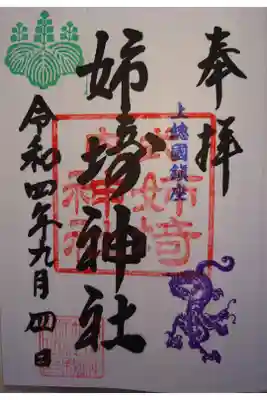 奉拝
上総國鎮座
姉埼神社
姉埼神社
令和四年九月四日